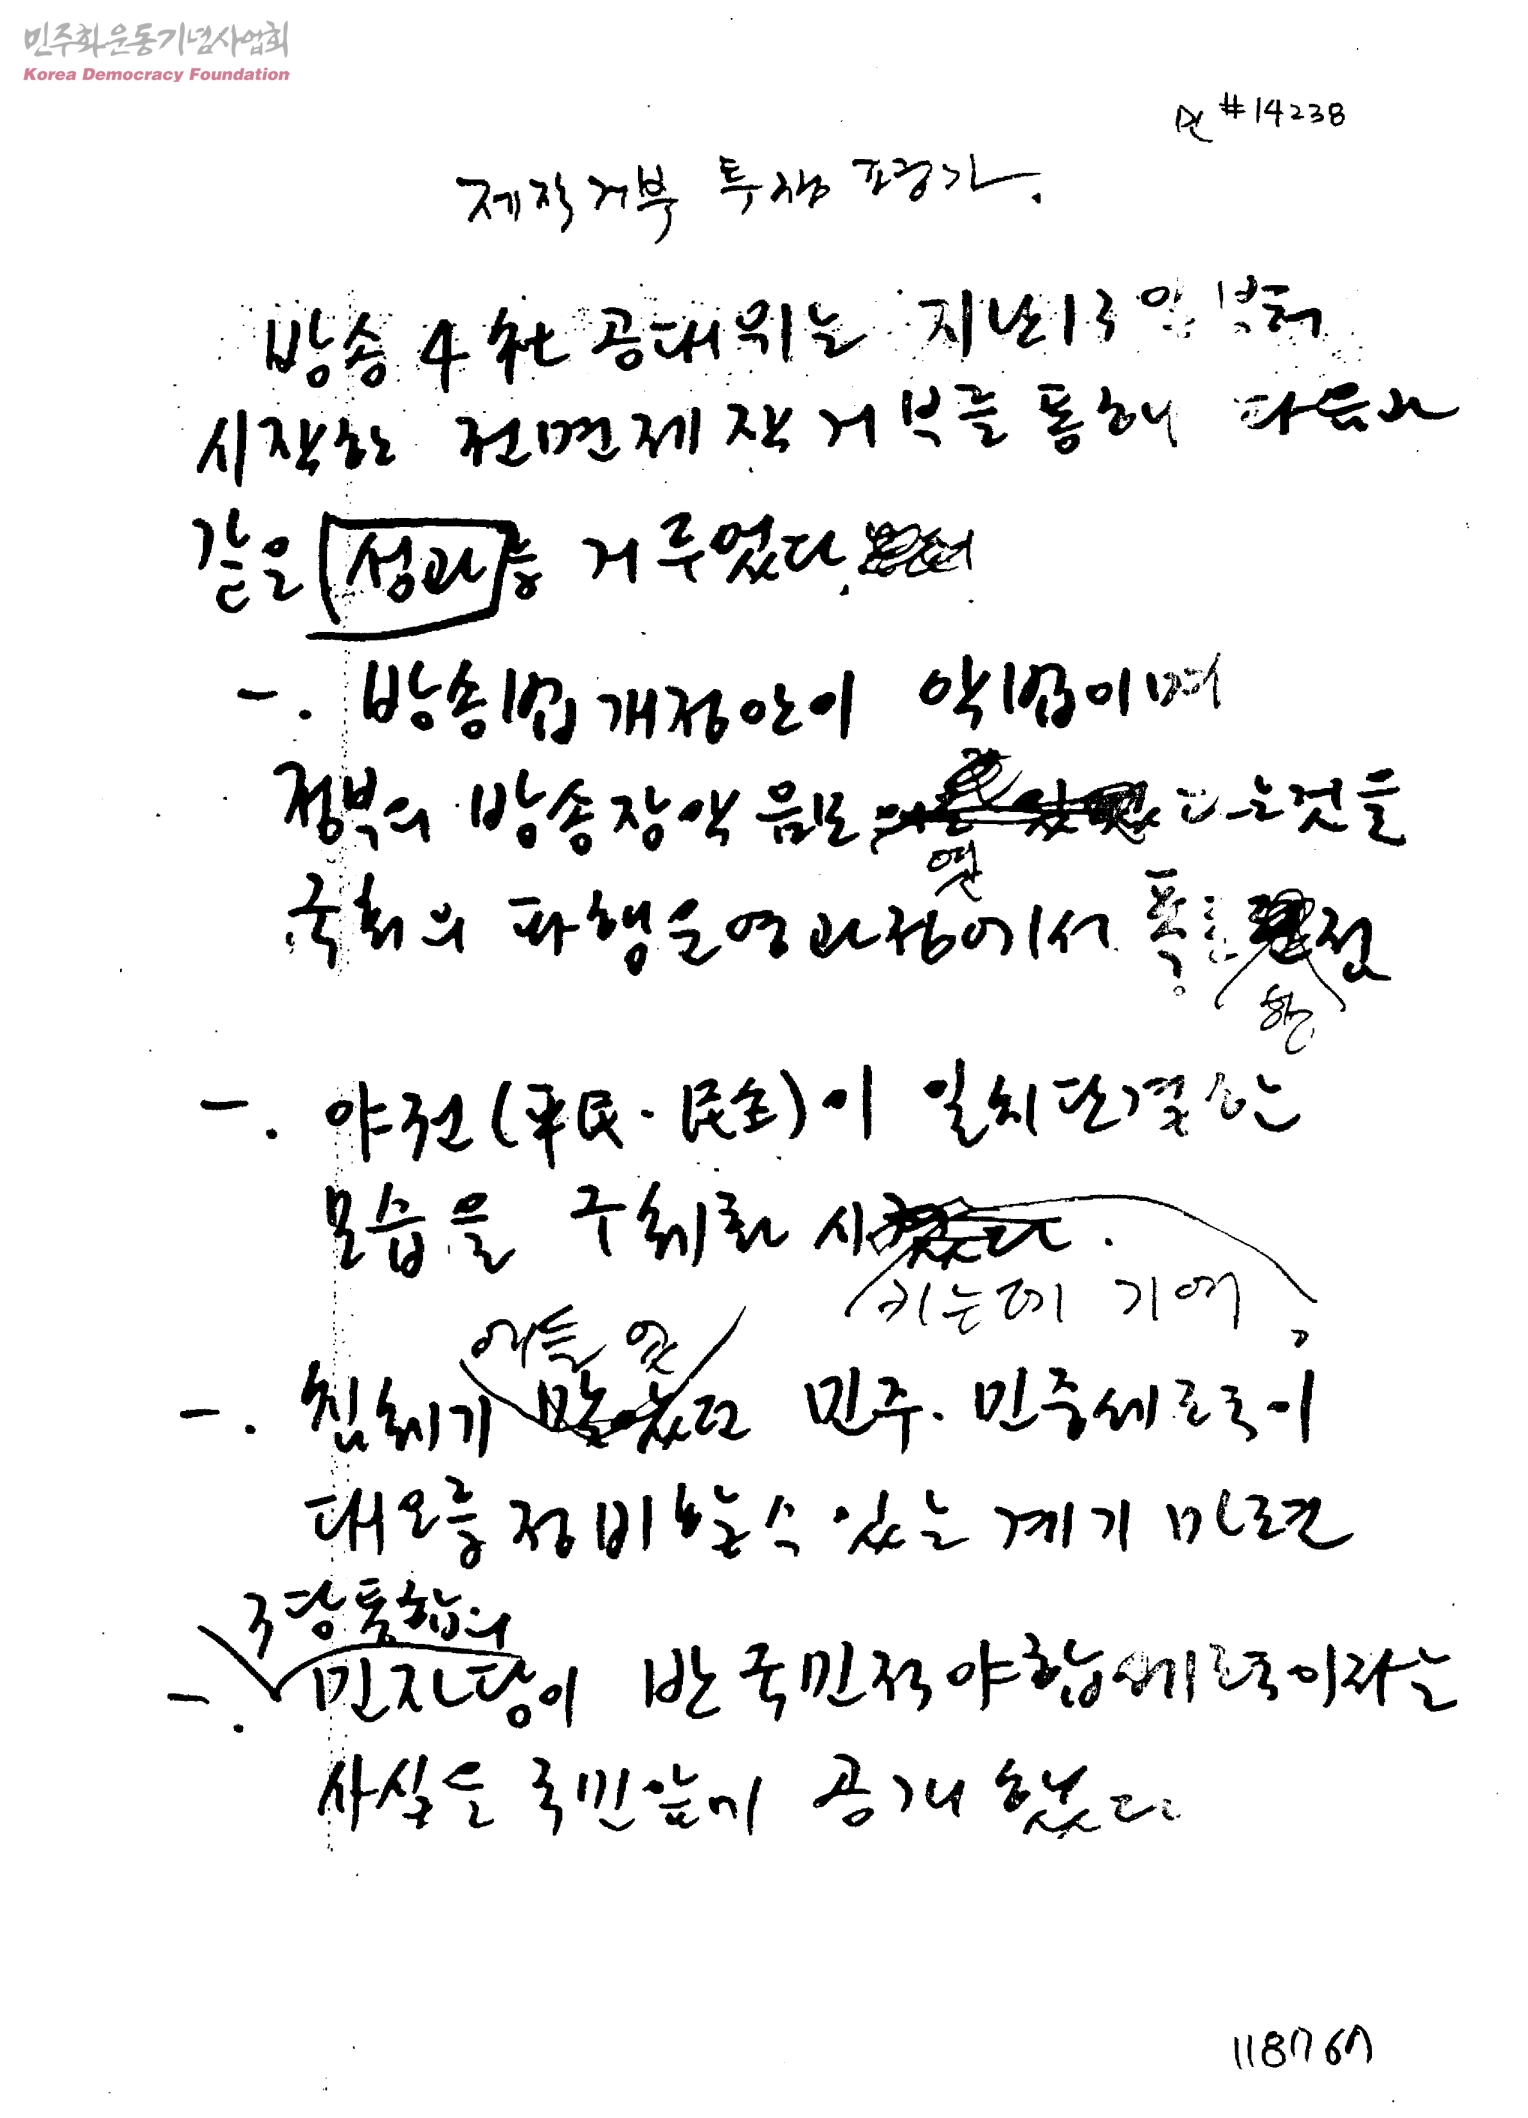 민주화운동기념사업회
Korea Democracy Foundation
#14238
제작거부 투쟁 평가.
방송4社 공대위는 지난13일부터
시작한 전면제작거부를 통해 다음과
같은 성과를 거두었다.
一. 방송법개정안이 악법이며
정부의 방송장악 음모 였다는것을
국회의 파행운영과정에서 폭로한 점
一. 야권(平民·民主)이 일치단결한
모습을 구체화 시키는데 기여
一. 침체기 에들 있던 민주·민중세력이
대오를 정비할 수 있는 계기 마련
3당통합의
一. 민자당이 반국민적야합세력이라는
사실을 국민앞에 공개했다
118767